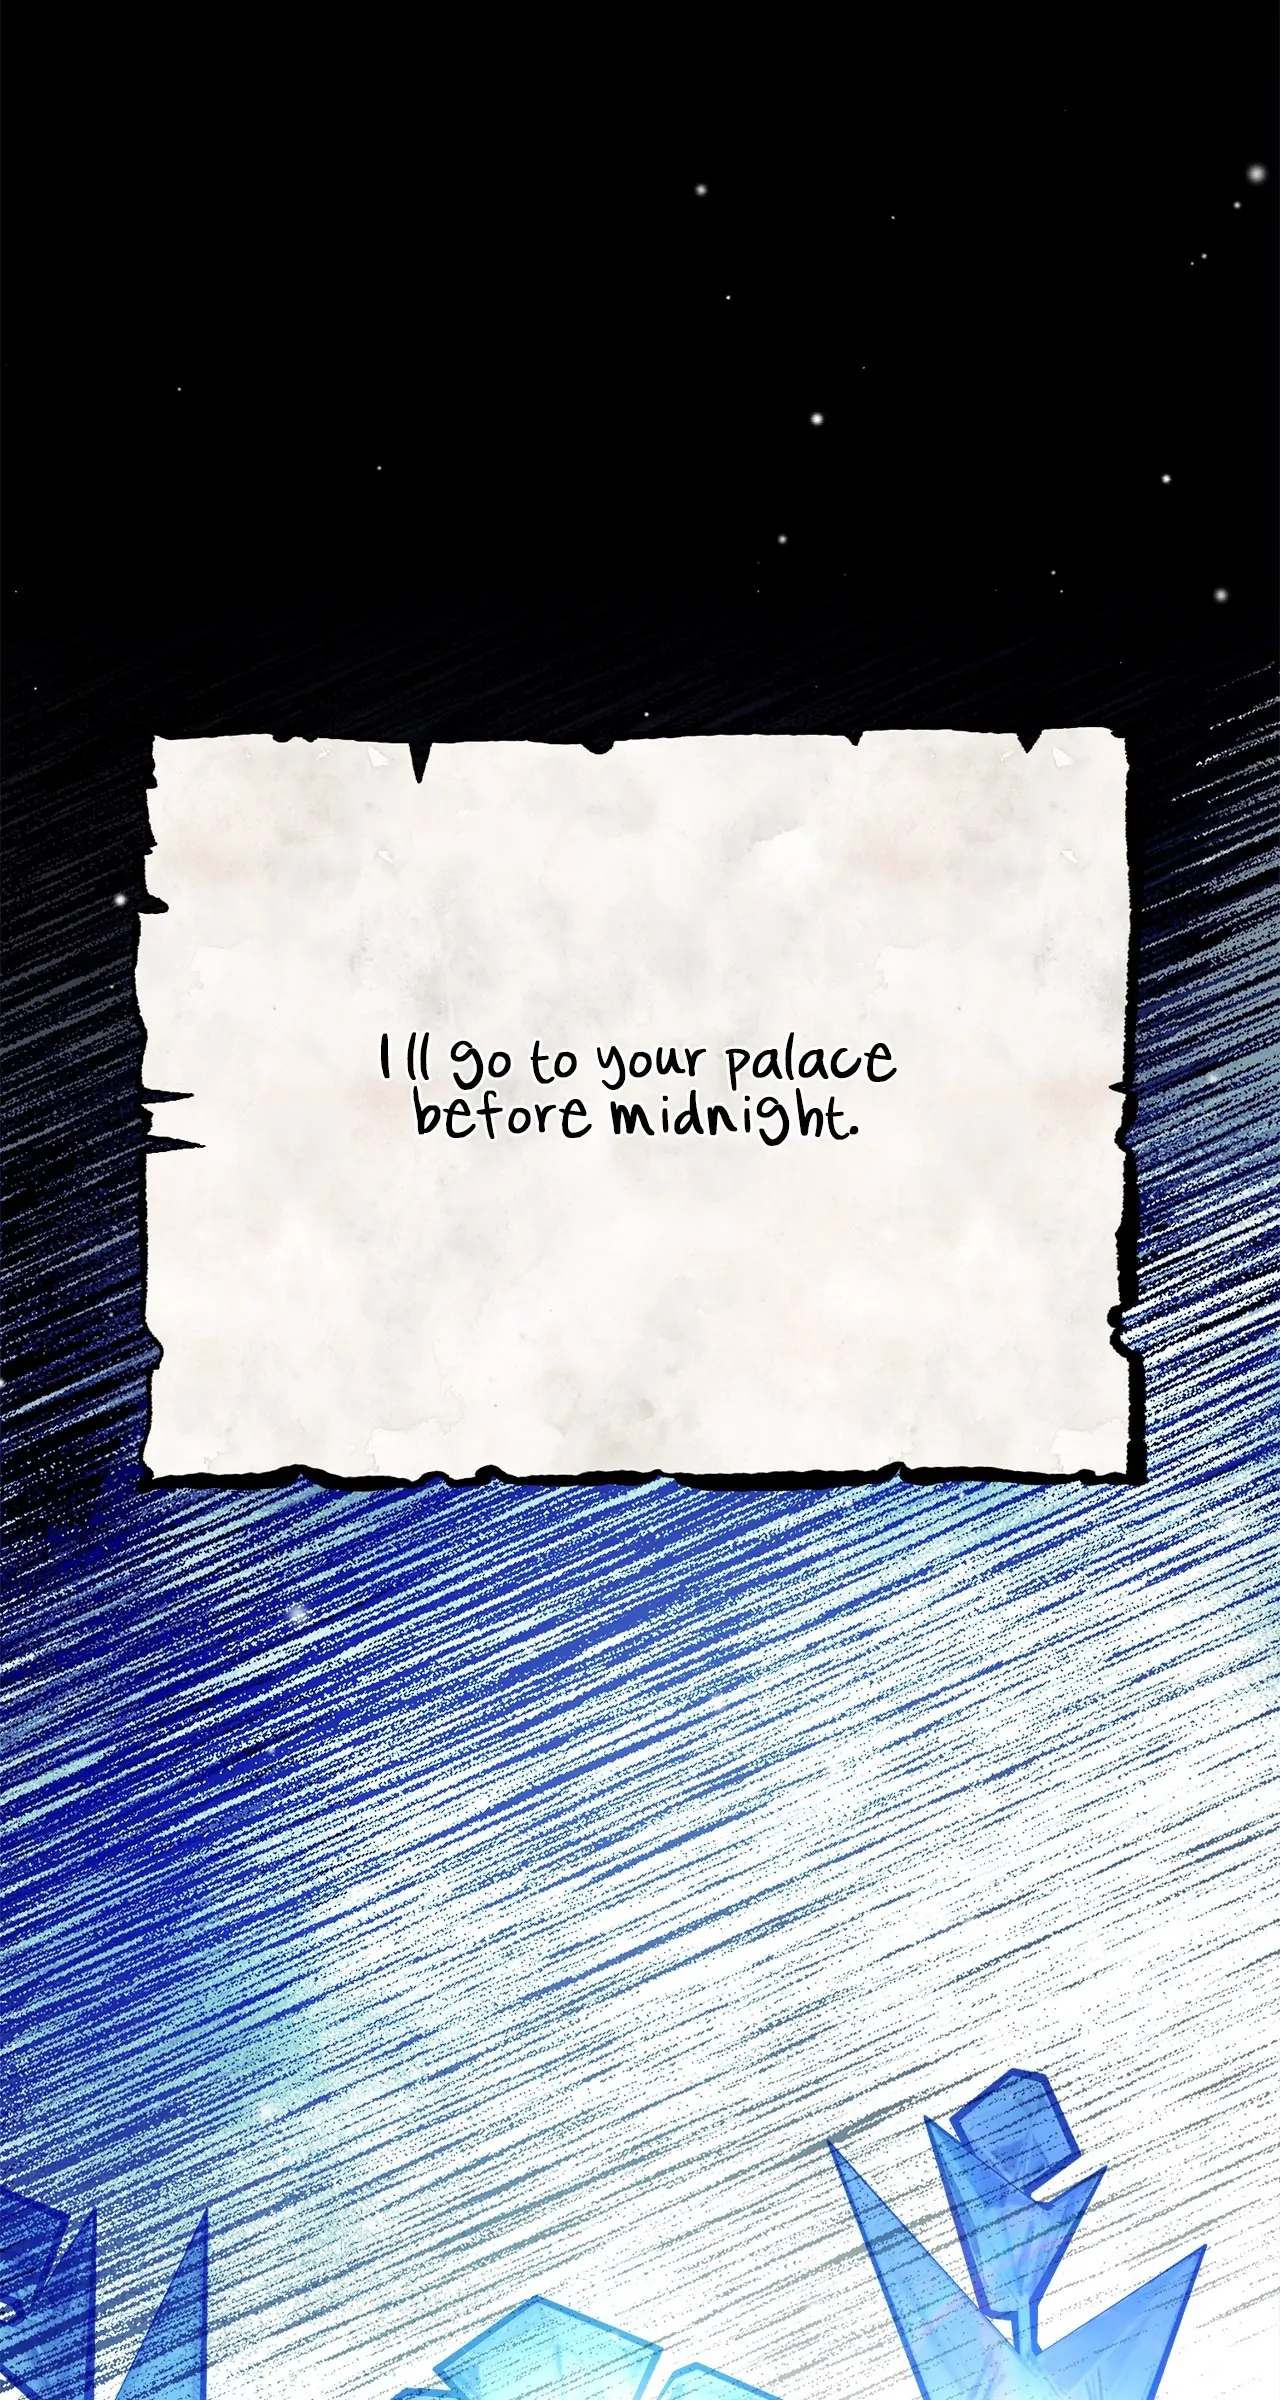 I ll go to your palace
before midnight.